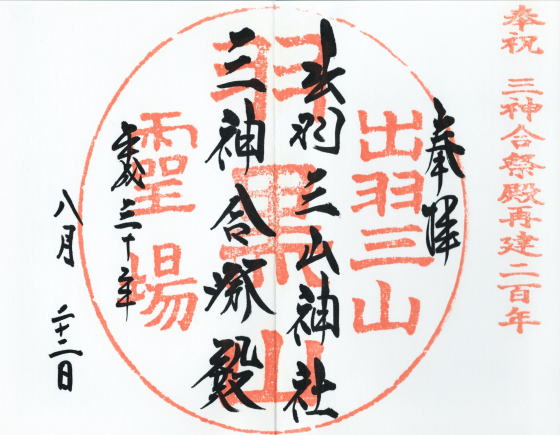 奉祝 三神合祭殿再建二百年
奉拝
出羽三山
出羽三山神社
羽黒山
三神合祭殿
霊場
平成三十年
八月二十二日